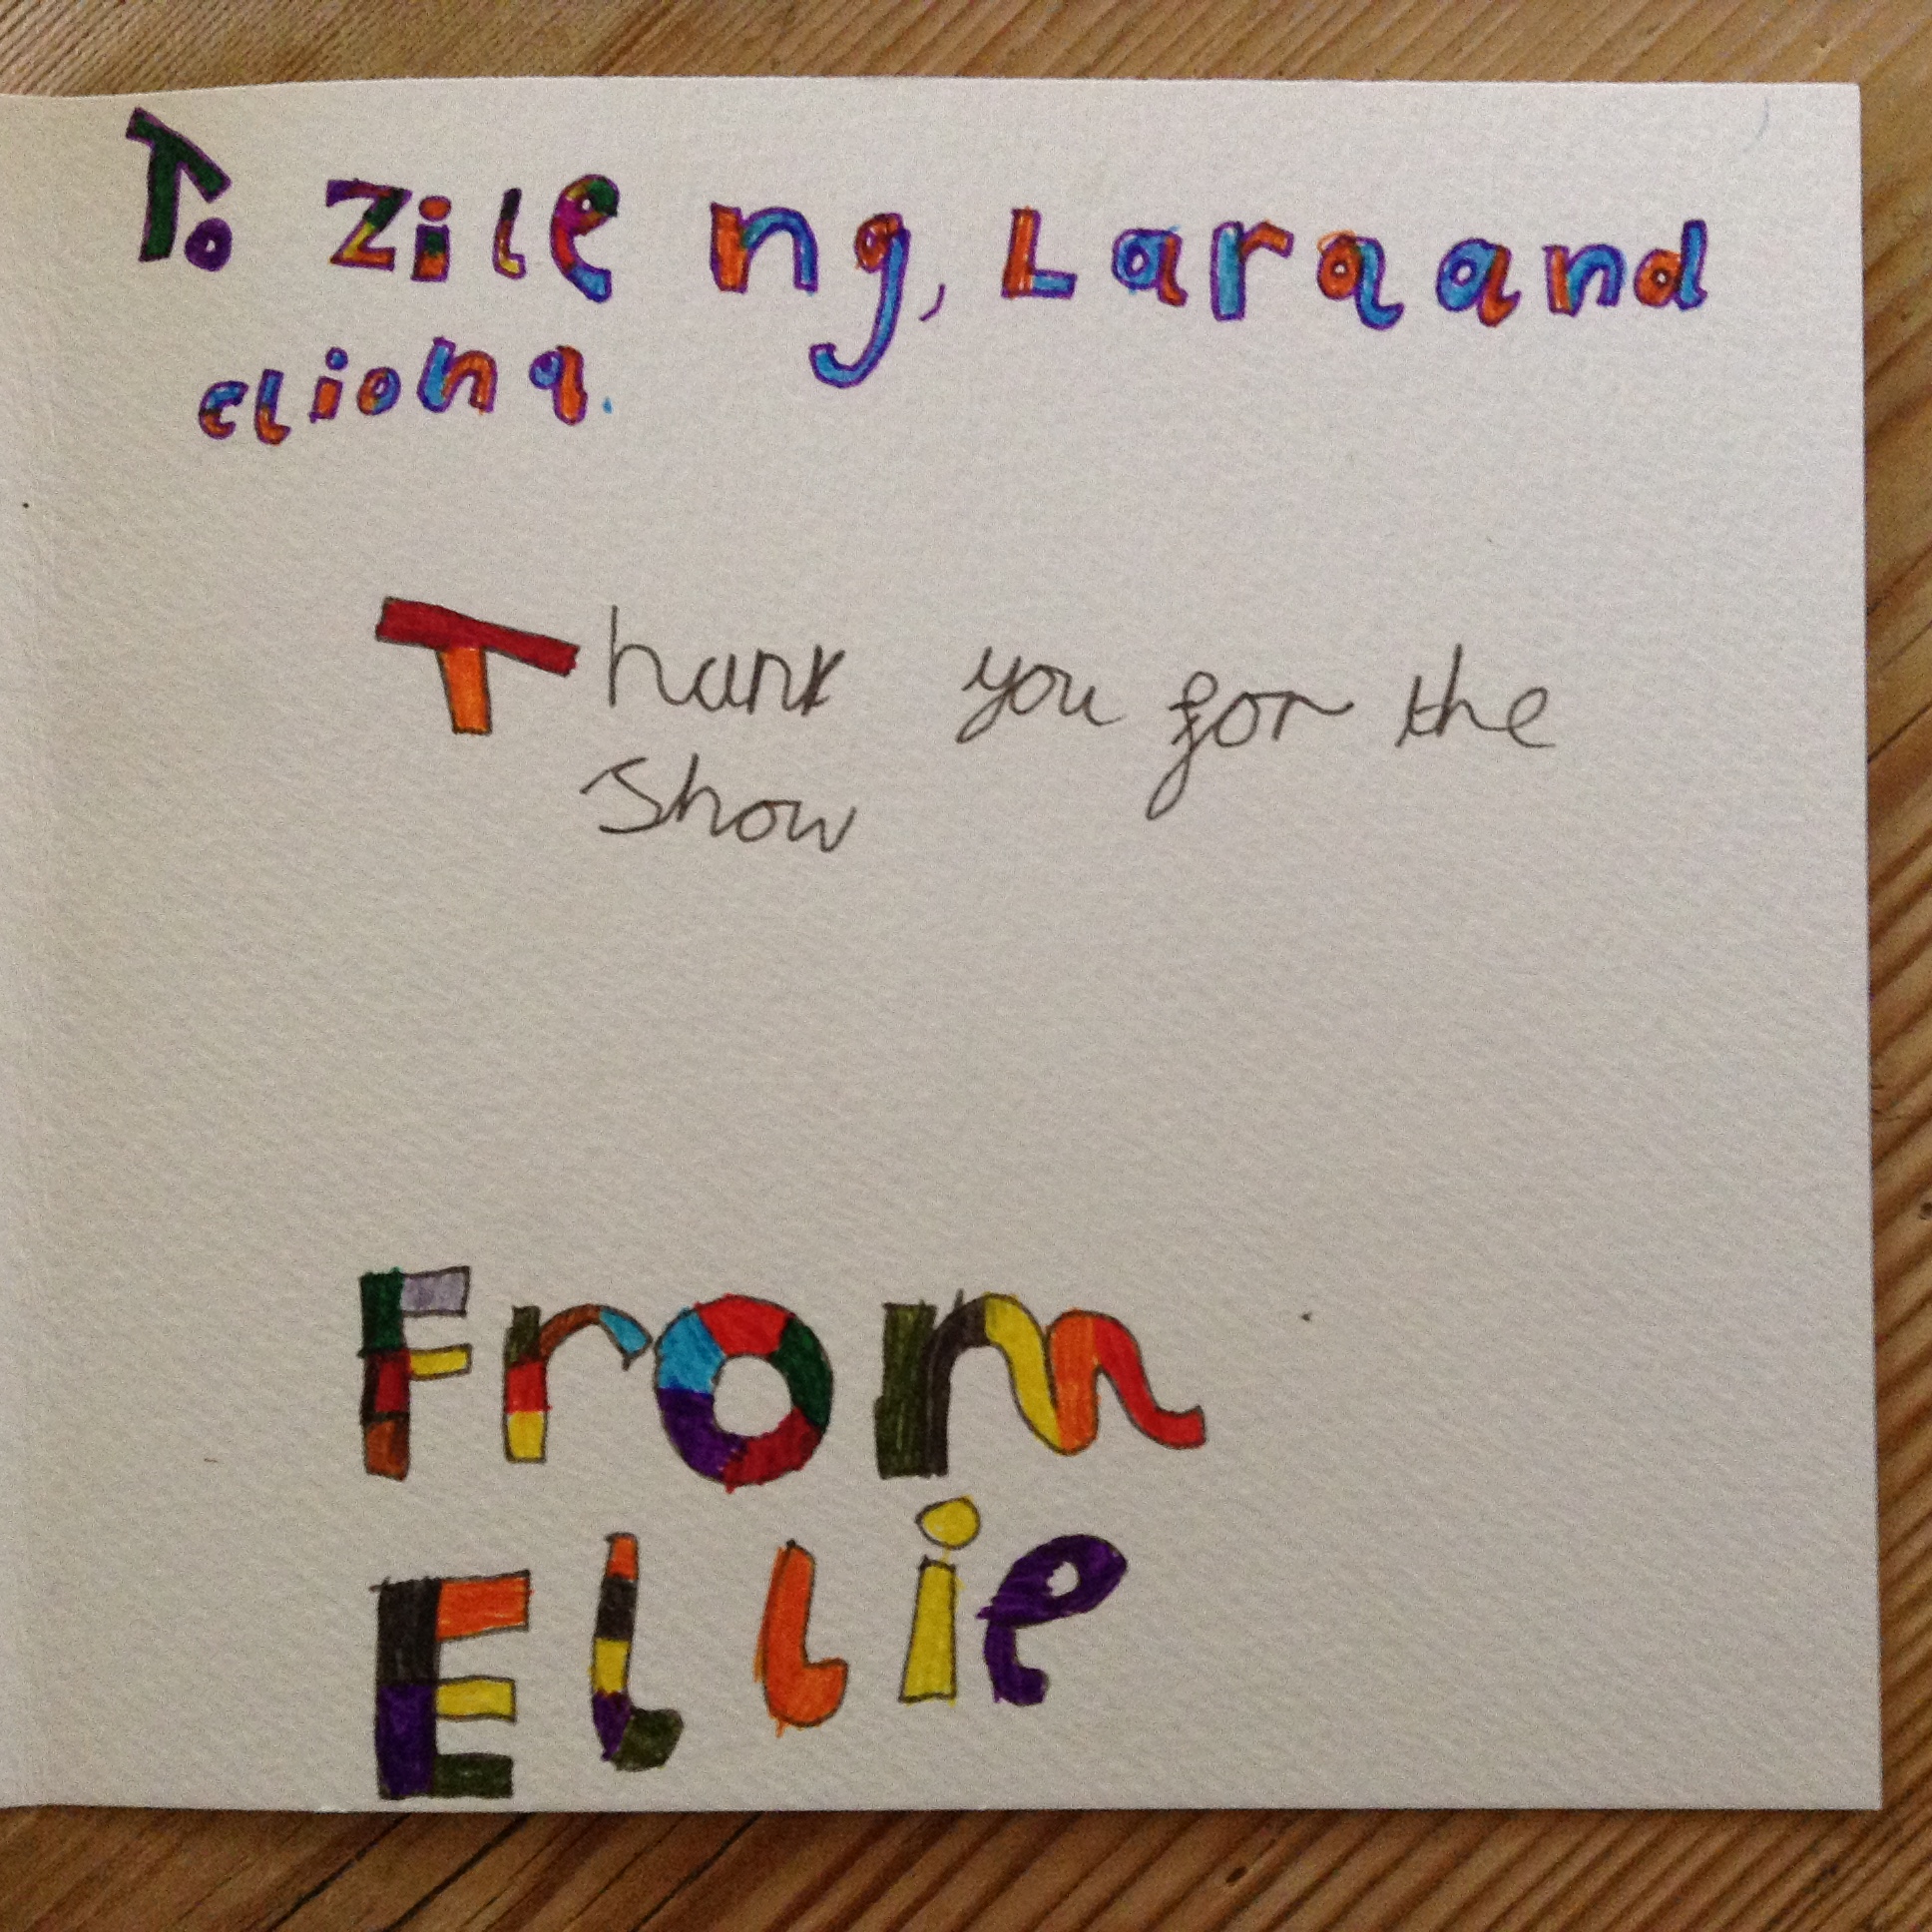 To Zile ng, Lara and
cliona.
Thank you for the
Show
From
Ellie